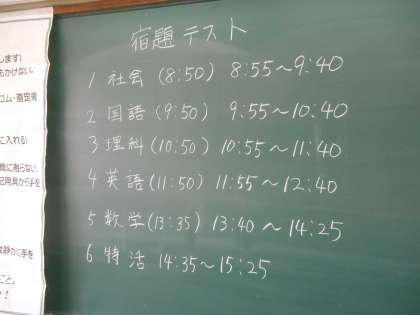 宿題テスト
1 社会 (8:50) 8:55～9:40
2 国語 (9:50) 9:55～10:40
3 理科 (10:50) 10:55～11:40
4 英語 (11:50) 11:55～12:40
5 数学 (13:35) 13:40～14:25
6 特活 14:35～15:25
します)
もかけない。
ゴム・筆記用
に入れる)
具に触らない。
記用具から手を
静かに手を
こと。